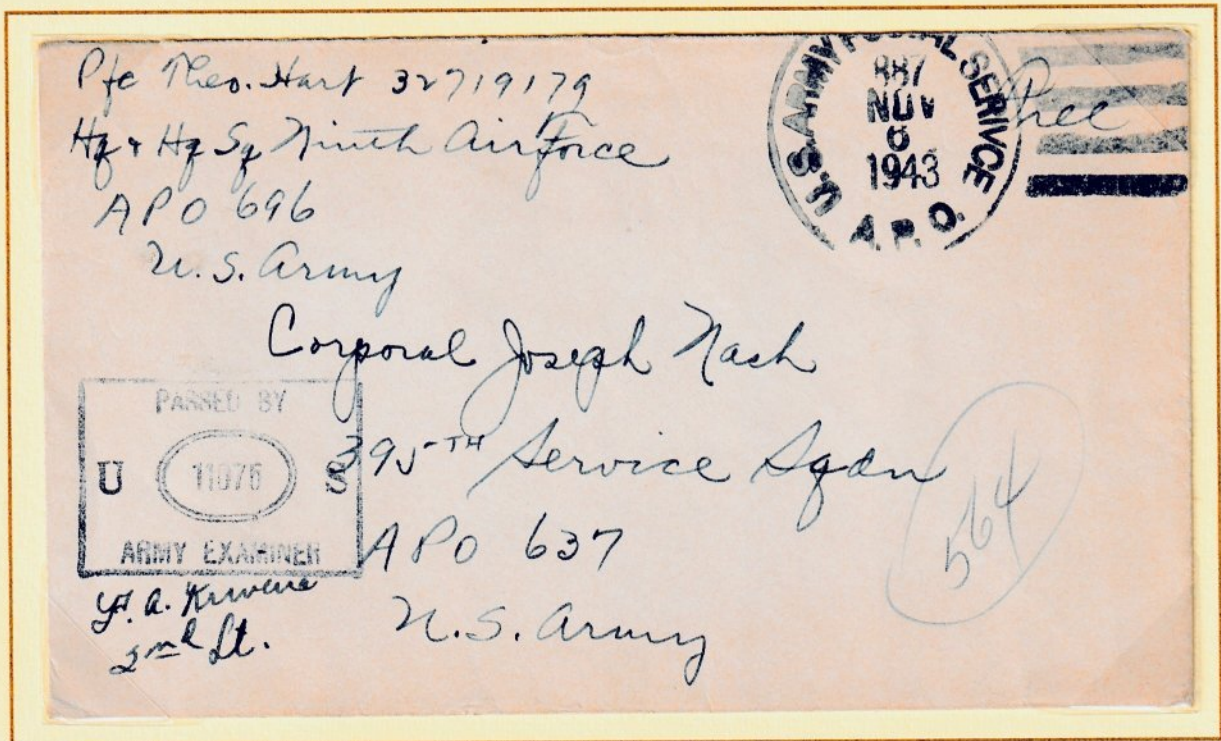 Pfc Theo. Hart 32719179
Hq & Hq Sq Ninth Air Force
APO 696
U.S. Army
U.S. ARMY POSTAL SERIVCE
887
NOV
6
1943
A.P.O.
Free
Corporal Joseph Nash
395TH Service Sqdn
APO 637
U.S. Army
PASSED BY
U 11076 S
ARMY EXAMINER
2nd Lt.
564